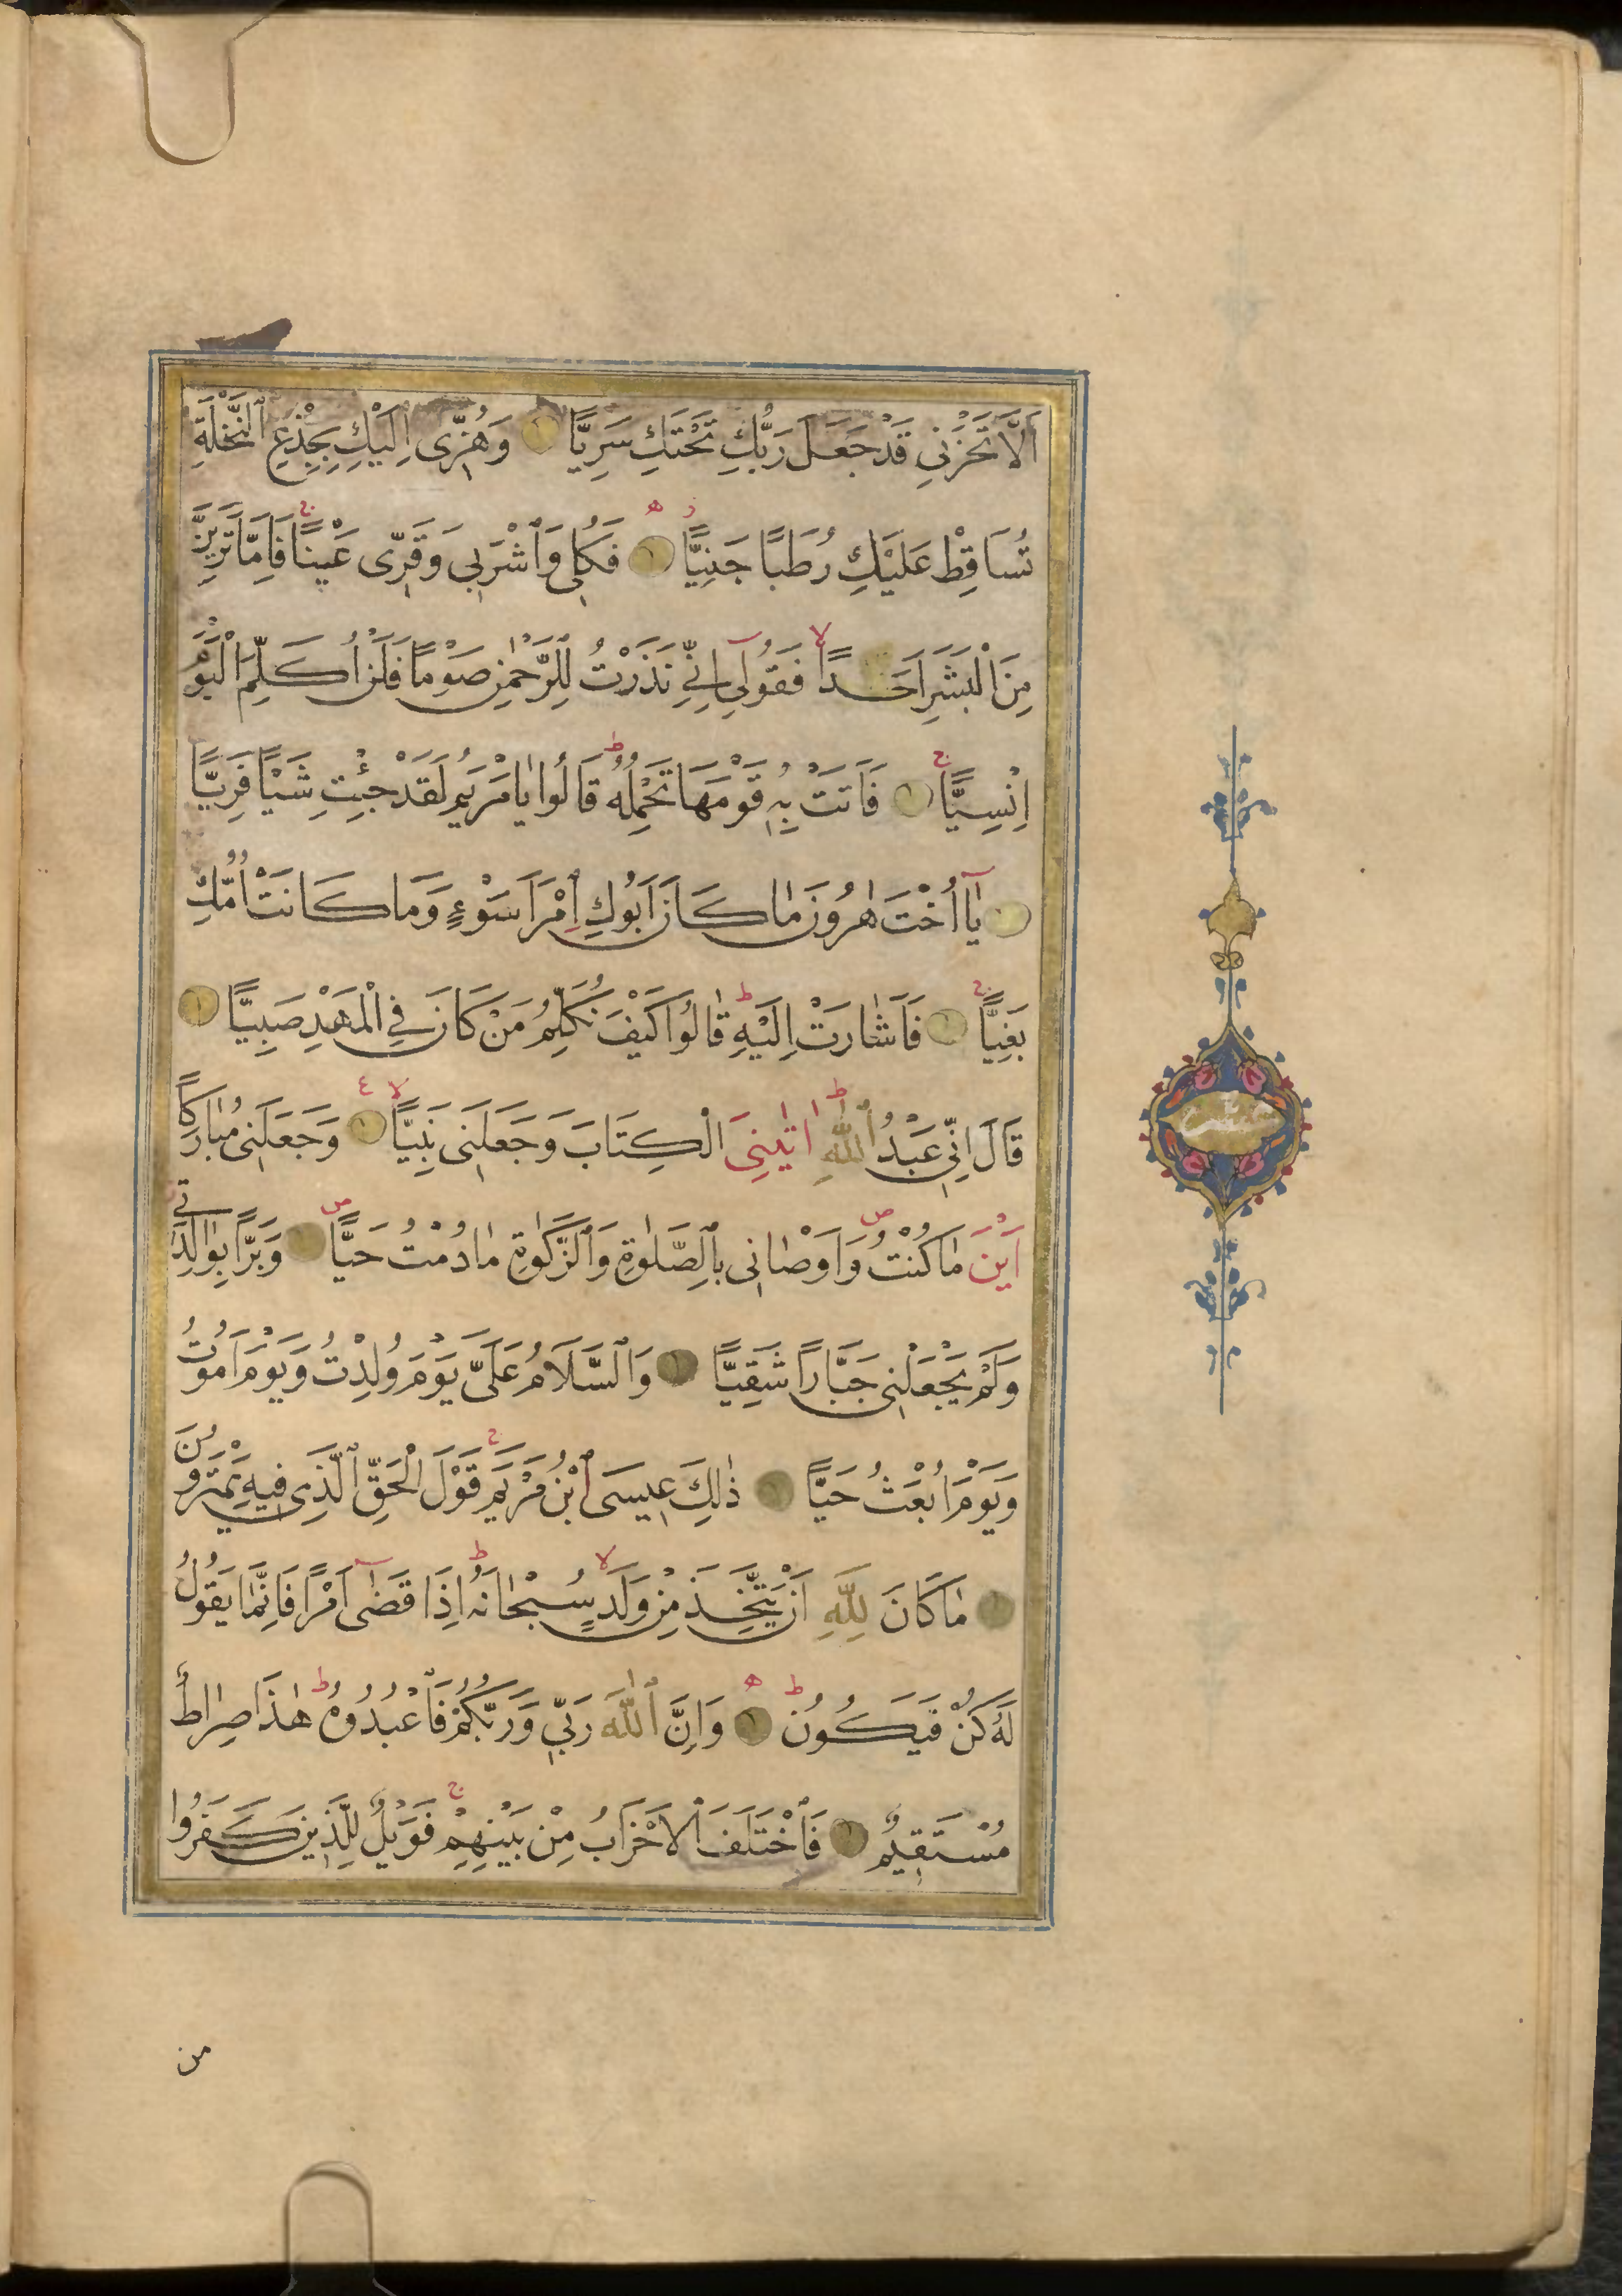 اَلَّا تَحْزَنِي قَدْ جَعَلَ رَبُّكِ تَحْتَكِ سَرِيًّا وَهُزِّى اِلَيْكِ بِجِذْعِ ٱلنَّخْلَةِ
تُسَاقِطْ عَلَيْكِ رُطَبًا جَنِيًّا فَكُلِى وَٱشْرَبِى وَقَرِّى عَيْنًا فَاِمَّا تَرَيِنَّ
مِنَ ٱلْبَشَرِ اَحَدًا فَقُولِىٓ اِنِّى نَذَرْتُ لِلرَّحْمٰنِ صَوْمًا فَلَنْ اُكَلِّمَ ٱلْيَوْمَ
اِنْسِيًّا فَاَتَتْ بِهِ قَوْمَهَا تَحْمِلُهُ قَالُوا يَا مَرْيَمُ لَقَدْ جِئْتِ شَيْئًا فَرِيًّا
يَآ اُخْتَ هٰرُونَ مَا كَانَ اَبُوكِ ٱمْرَاَ سَوْءٍ وَمَا كَانَتْ اُمُّكِ
بَغِيًّا فَاَشَارَتْ اِلَيْهِ قَالُوا كَيْفَ نُكَلِّمُ مَنْ كَانَ فِى ٱلْمَهْدِ صَبِيًّا
قَالَ اِنِّى عَبْدُ ٱللّٰهِ اٰتٰينِىَ الْكِتَابَ وَجَعَلَنِى نَبِيًّا وَجَعَلَنِى مُبَارَكًا
اَيْنَ مَا كُنْتُ وَاَوْصَانِى بِٱلصَّلٰوةِ وَٱلزَّكٰوةِ مَا دُمْتُ حَيًّا وَبَرًّا بِوَالِدَتِى
وَلَمْ يَجْعَلْنِى جَبَّارًا شَقِيًّا وَٱلسَّلَامُ عَلَىَّ يَوْمَ وُلِدْتُ وَيَوْمَ اَمُوتُ
وَيَوْمَ اُبْعَثُ حَيًّا ذٰلِكَ عِيسَى ٱبْنُ مَرْيَمَ قَوْلَ ٱلْحَقِّ ٱلَّذِى فِيهِ يَمْتَرُونَ
مَا كَانَ لِلّٰهِ اَنْ يَتَّخِذَ مِنْ وَلَدٍ سُبْحَانَهُ اِذَا قَضٰىٓ اَمْرًا فَاِنَّمَا يَقُولُ
لَهُ كُنْ فَيَكُونُ وَاِنَّ ٱللّٰهَ رَبِّى وَرَبُّكُمْ فَٱعْبُدُوهُ هٰذَا صِرَاطٌ
مُسْتَقِيمٌ فَٱخْتَلَفَ ٱلْاَحْزَابُ مِنْ بَيْنِهِمْ فَوَيْلٌ لِلَّذِينَ كَفَرُوا
من